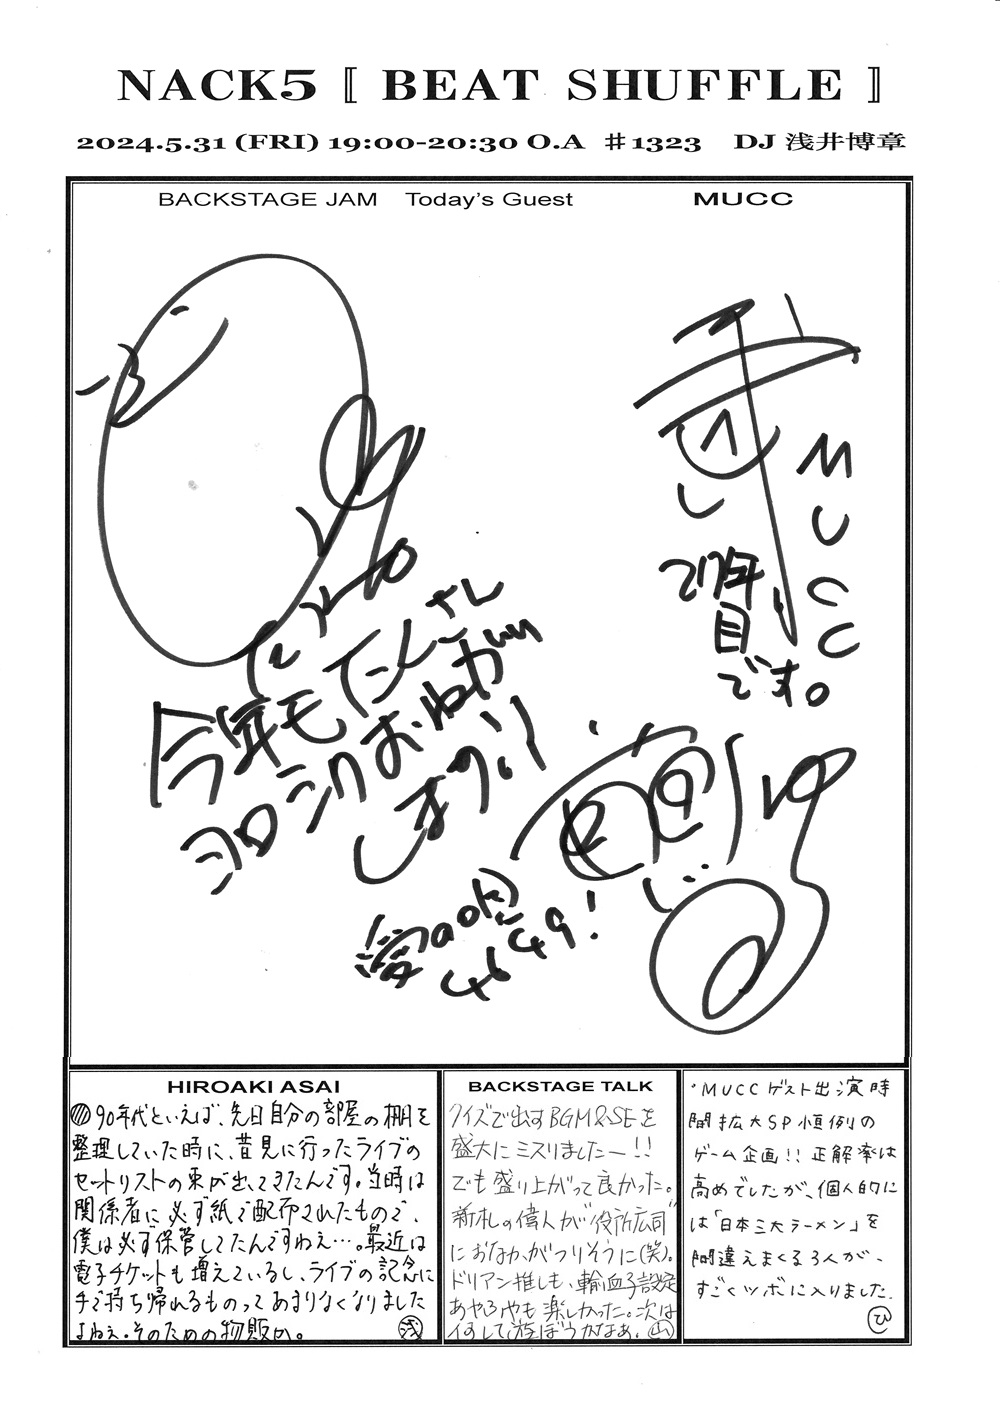 NACK5 〚 BEAT SHUFFLE 〛
2024.5.31 (FRI) 19:00-20:30 O.A ♯1323 DJ 浅井博章
BACKSTAGE JAM Today's Guest MUCC
MUCC
27年
目
です。
今年もたくさん
ヨロシクおねがい
しまっす!!
愛
4649!
HIROAKI ASAI
90年代といえば、先日自分の部屋の棚を
整理していた時に、昔見に行ったライブの
セットリストの束が出てきたんです。当時は
関係者に必ず紙で配布されたもので、
僕は必ず保管してたんですねぇ…。最近は
電子チケットも増えているし、ライブの記念に
手で持ち帰れるものってあまりなくなりました
よねぇ。そのための物販か。 浅
BACKSTAGE TALK
クイズで出すBGM&SEを
盛大にミスりましたー!!
でも盛り上がって良かった。
新札の偉人が"役所広司"
におなかがつりそうに(笑)。
ドリアン推しも、輪血子設定
あやろやも楽しかった。次は
何して遊ぼうかなぁ。 山
・MUCCゲスト出演時
間拡大SP恒例の
ゲーム企画!! 正解率は
高めでしたが、個人的に
は「日本三大ラーメン」を
間違えまくる3人が、
すごくツボに入りました。
ひ